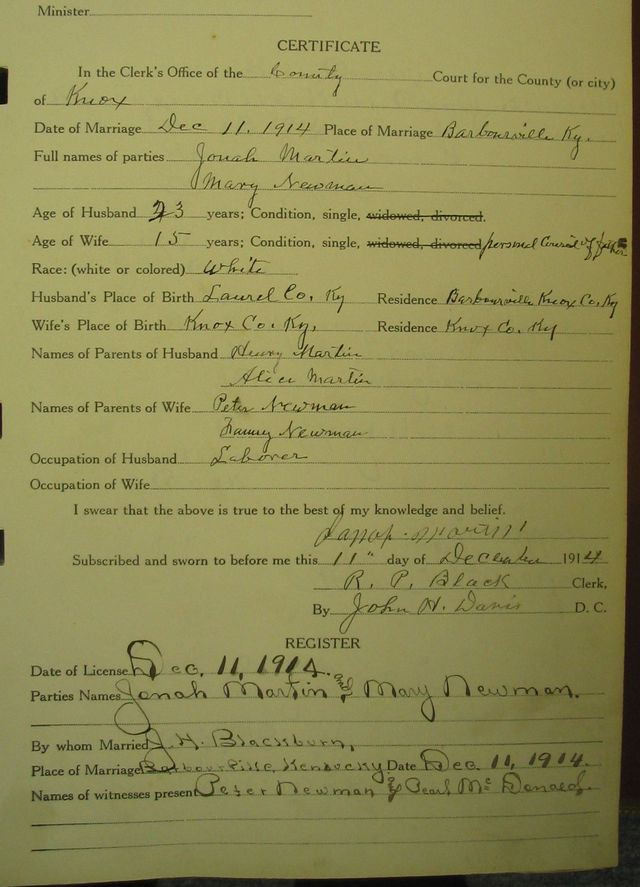 Minister
CERTIFICATE
In the Clerk's Office of the County Court for the County (or city)
of Knox
Date of Marriage Dec 11, 1914 Place of Marriage Barbourville Ky.
Full names of parties Jonah Martin
Mary Newman
Age of Husband 23 years; Condition, single, widowed, divorced.
Age of Wife 15 years; Condition, single, widowed, divorced personal of father
Race: (white or colored) White
Husband's Place of Birth Laurel Co. Ky Residence Barbourville Knox Co. Ky
Wife's Place of Birth Knox Co. Ky. Residence Knox Co. Ky
Names of Parents of Husband Henry Martin
Alice Martin
Names of Parents of Wife Peter Newman
Fanny Newman
Occupation of Husband Laborer
Occupation of Wife
I swear that the above is true to the best of my knowledge and belief.
Martin
Subscribed and sworn to before me this 11" day of December 1914
R. P. Black Clerk,
By John H. Davis D. C.
REGISTER
Date of License Dec. 11, 1914.
Parties Names Jonah Martin and Mary Newman.
By whom Married J. H. Blackburn,
Place of Marriage Barbourville, Kentucky Date Dec. 11, 1914.
Names of witnesses present Peter Newman & Pearl McDonald.